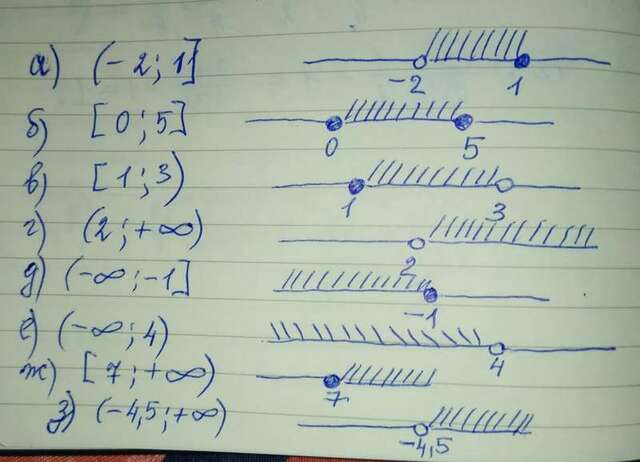 а) (-2; 1] -2 1
б) [0; 5] 0 5
в) [1; 3) 1 3
г) (2; +∞) 2
д) (-∞; -1] -1
е) (-∞; 4) 4
ж) [7; +∞) 7
з) (-4,5; +∞) -4,5